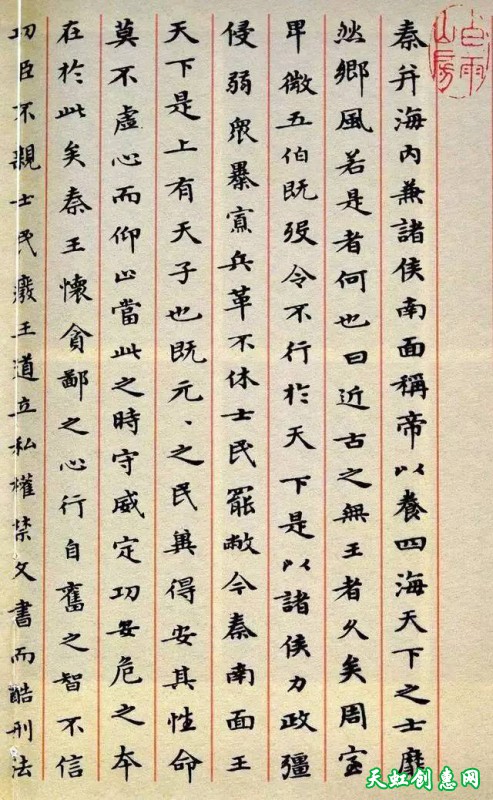 白雨山房
秦并海內兼諸侯南面稱帝以養四海天下之士靡
然鄉風若是者何也曰近古之無王者久矣周室
卑微五伯既歿令不行於天下是以諸侯力政彊
侵弱眾暴寡兵革不休士民罷敝今秦南面王
天下是上有天子也既元、之民冀得安其性命
莫不虛心而仰上當此之時守威定功安危之本
在於此矣秦王懷貪鄙之心行自奮之智不信
功臣不親士民廢王道立私權禁文書而酷刑法
天虹创惠网